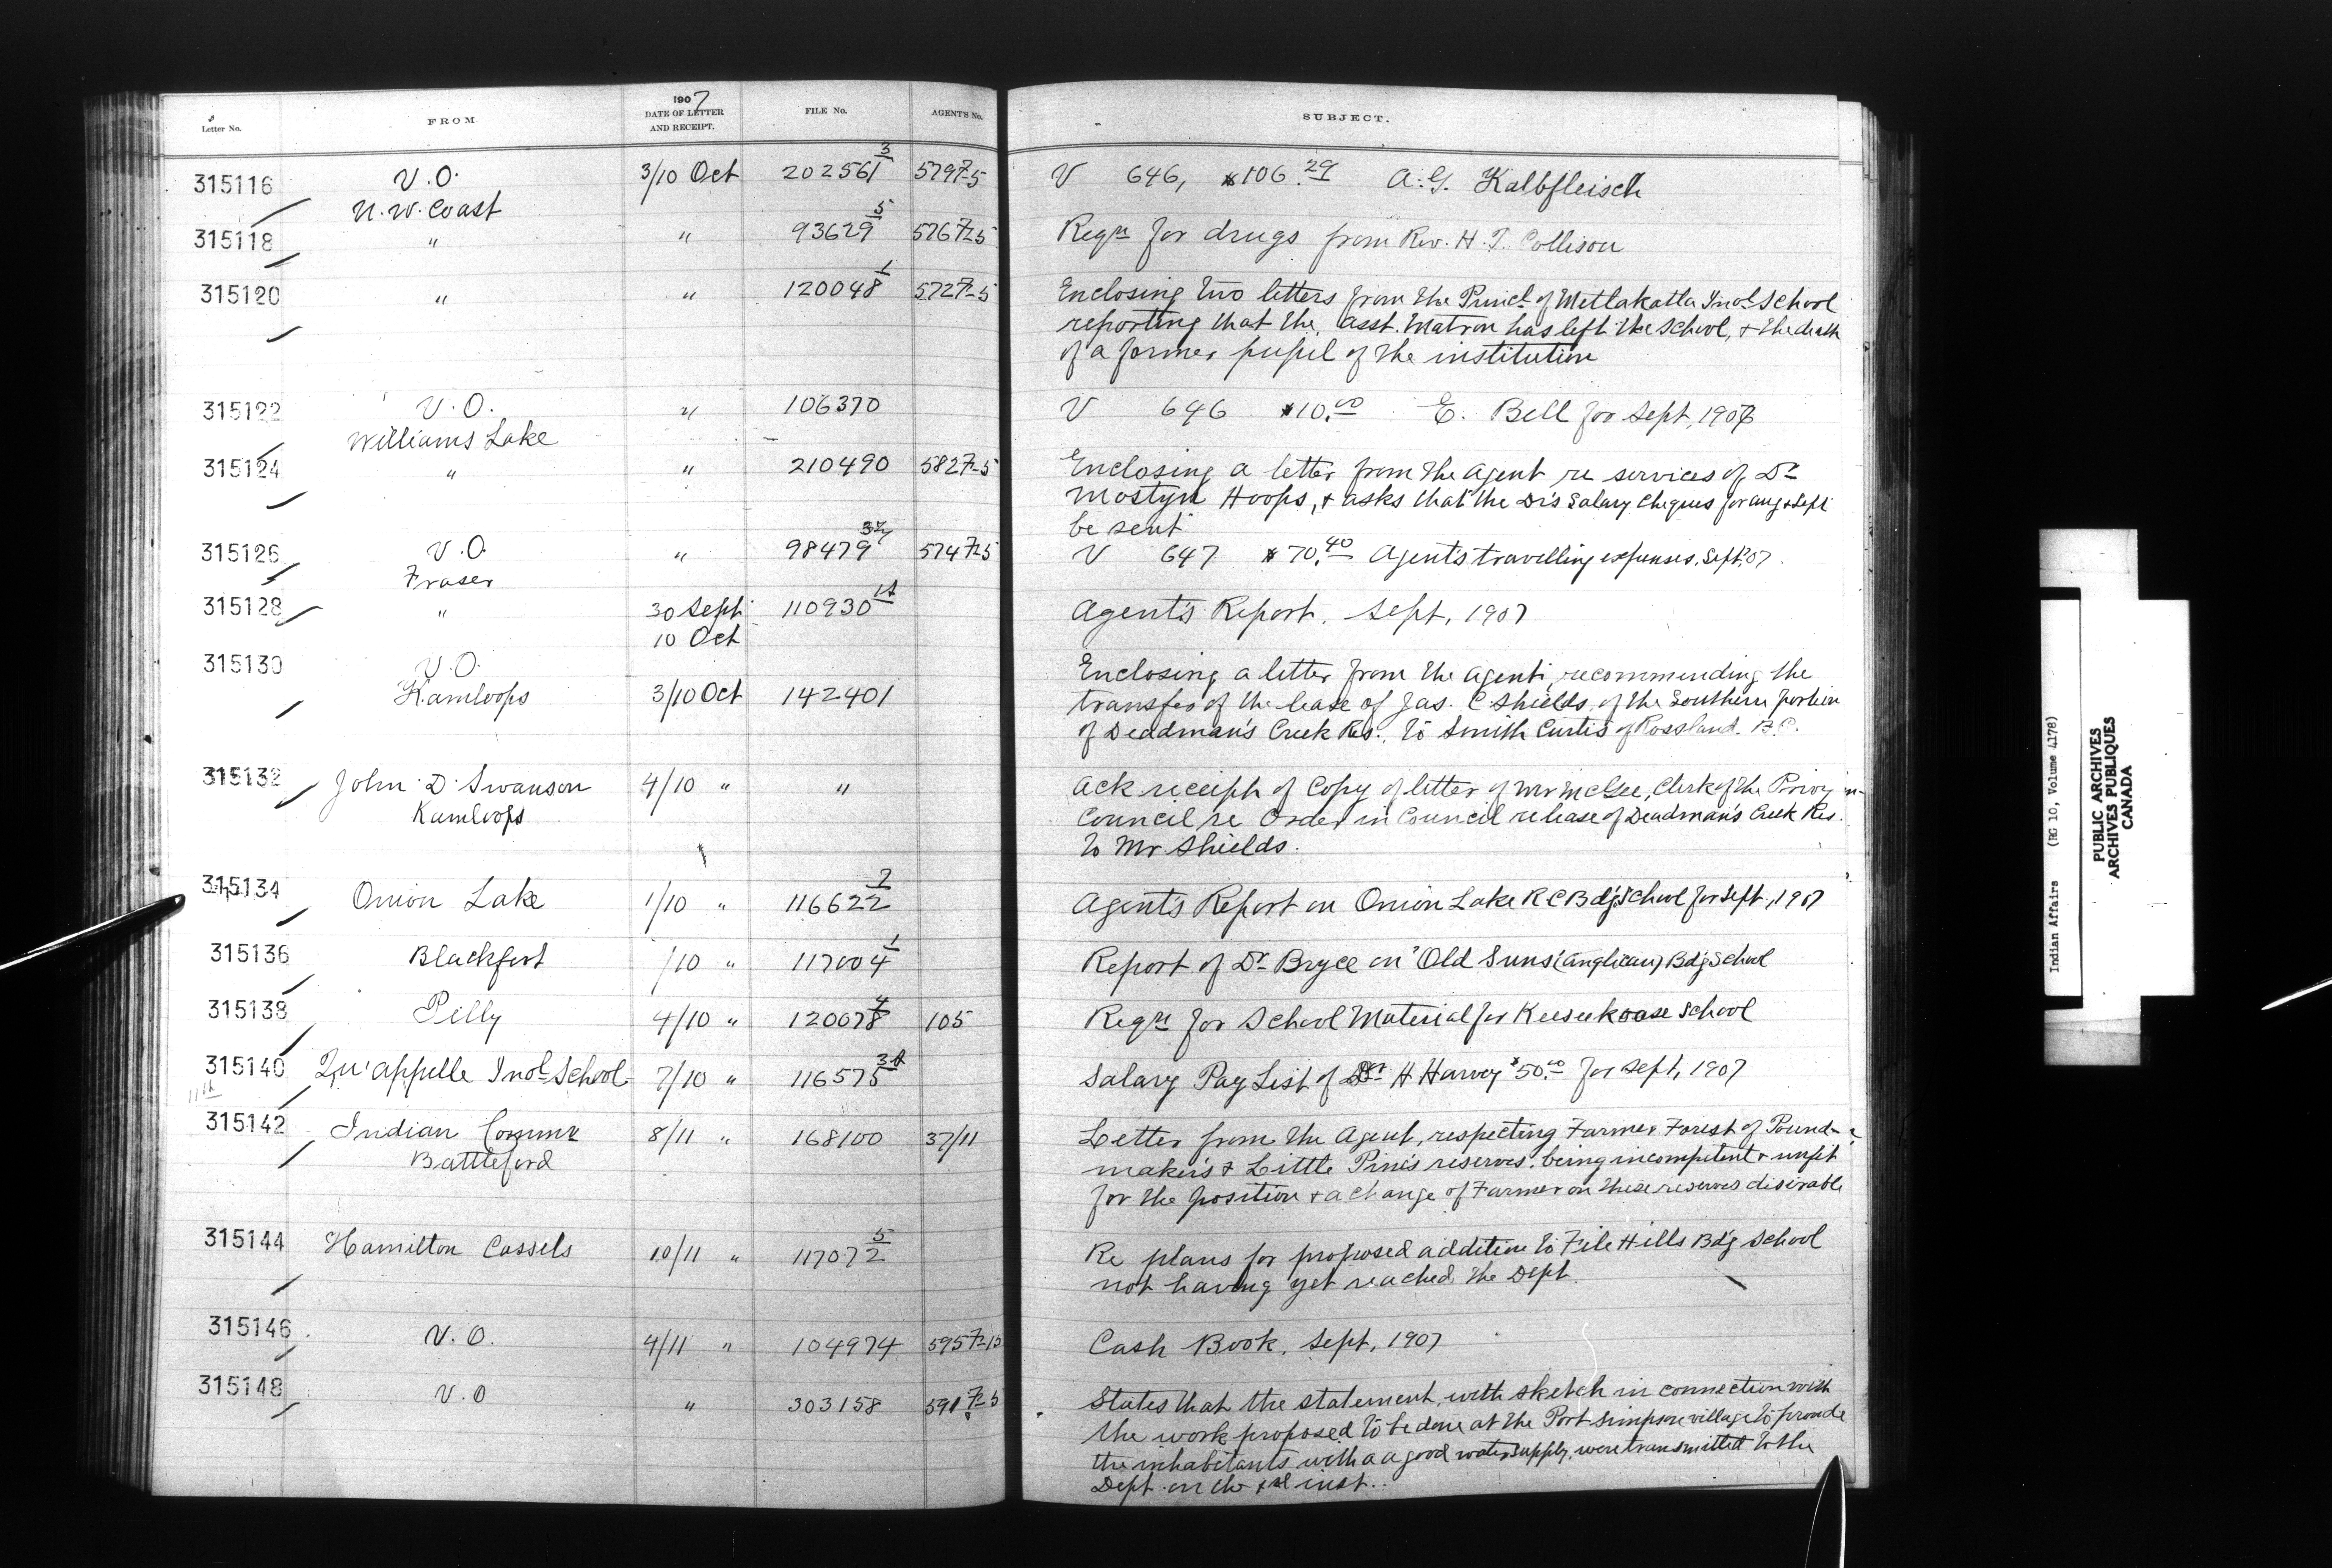 Letter No. FROM 1907 DATE OF LETTER AND RECEIPT. FILE No. AGENT'S No. SUBJECT.
315116 V.O. 3/10 Oct 202561 3 579 7-5 V 646, $106.29 A. G. Kalbfleisch
N.W. Coast
315118 " " 93629 5 576 7-5 Reqn for drugs from Rev. H. Collison
315120 " " 120048 1 572 7-5 Enclosing two letters from the Princl of Metlakatla Indl School
reporting that the Asst. Matron has left the School, & the death
of a former pupil of the institution
315122 V.O. " 106370 V 646 $10.00 E. Bell for Sept, 1907
Williams Lake
315124 " " 210490 582 7-5 Enclosing a letter from the Agent re services of Dr
Mostyn Hoops, & asks that the Dr's Salary Cheques for Aug & Sept
be sent
315126 V.O. " 98479 574 7-5 V 647 $70.40 Agent's travelling expenses, Sept, '07
Fraser
315128 " 30 Sept 110930 Agent's Report. Sept, 1907
10 Oct
315130 V.O. Enclosing a letter from the Agent, recommending the
Kamloops 3/10 Oct 142401 transfer of the lease of Jas. C Shields, of the Southern portion
of Deadman's Creek Res., to Smith Curtis of Rossland. B.C.
315132 John D. Swanson 4/10 " " Ack receipt of Copy of letter of Mr McGee, Clerk of the Privy
Kamloops Council re Order in Council re lease of Deadman's Creek Res.
to Mr Shields.
315134 Onion Lake 1/10 " 116622 2 Agent's Report on Onion Lake R C Bdg School for Sept, 1907
315136 Blackfoot /10 " 117004 1 Report of Dr Bryce on "Old Suns (Anglican) Bdg School
315138 Pelly 4/10 " 120078 4 105 Reqn for School Material for Keeseekoose School
315140 Qu'appelle Indl School 7/10 " 116575 Salary Pay List of H Harvey $50.00 for Sept, 1907
11th
315142 Indian Commr 8/11 " 168100 37/11 Letter from the Agent, respecting Farmer Forest of Pound-
Battleford maker's & Little Pine's reserves, being incompetent & unfit
for the position & a change of Farmer on these reserves desirable
315144 Hamilton Cassels 10/11 " 117072 5 Re plans for proposed addition to File Hills Bdg School
not having yet reached the Dept.
315146 V.O. 4/11 " 104974 595 7-12 Cash Book, Sept, 1907
315148 V.O " 303158 591 7-5 States that the statement, with sketch in connection with
the work proposed to be done at the Port Simpson village to provide
the inhabitants with a a good water supply, were transmitted to the
Dept. on the inst.
Indian Affairs (RG 10, Volume 4178)
PUBLIC ARCHIVES
ARCHIVES PUBLIQUES
CANADA